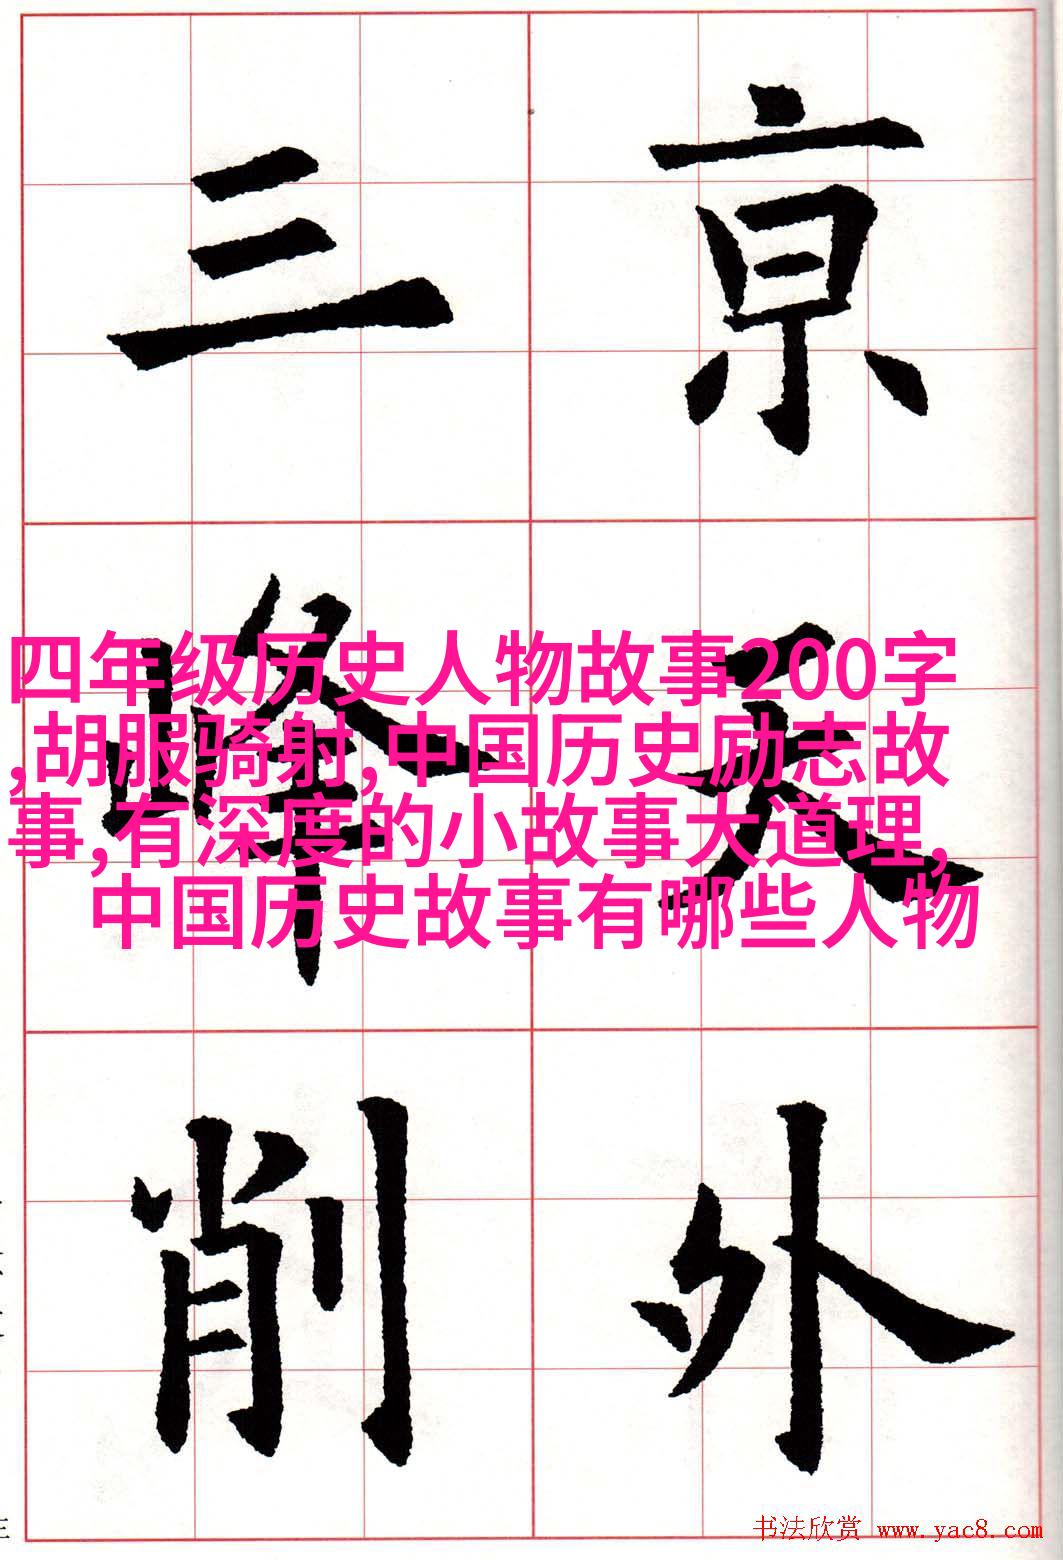 亰天外
三峰削
四年级历史人物故事200字
,胡服骑射,中国历史励志故
事,有深度的小故事大道理,
中国历史故事有哪些人物
书法欣赏 www.yac8.com